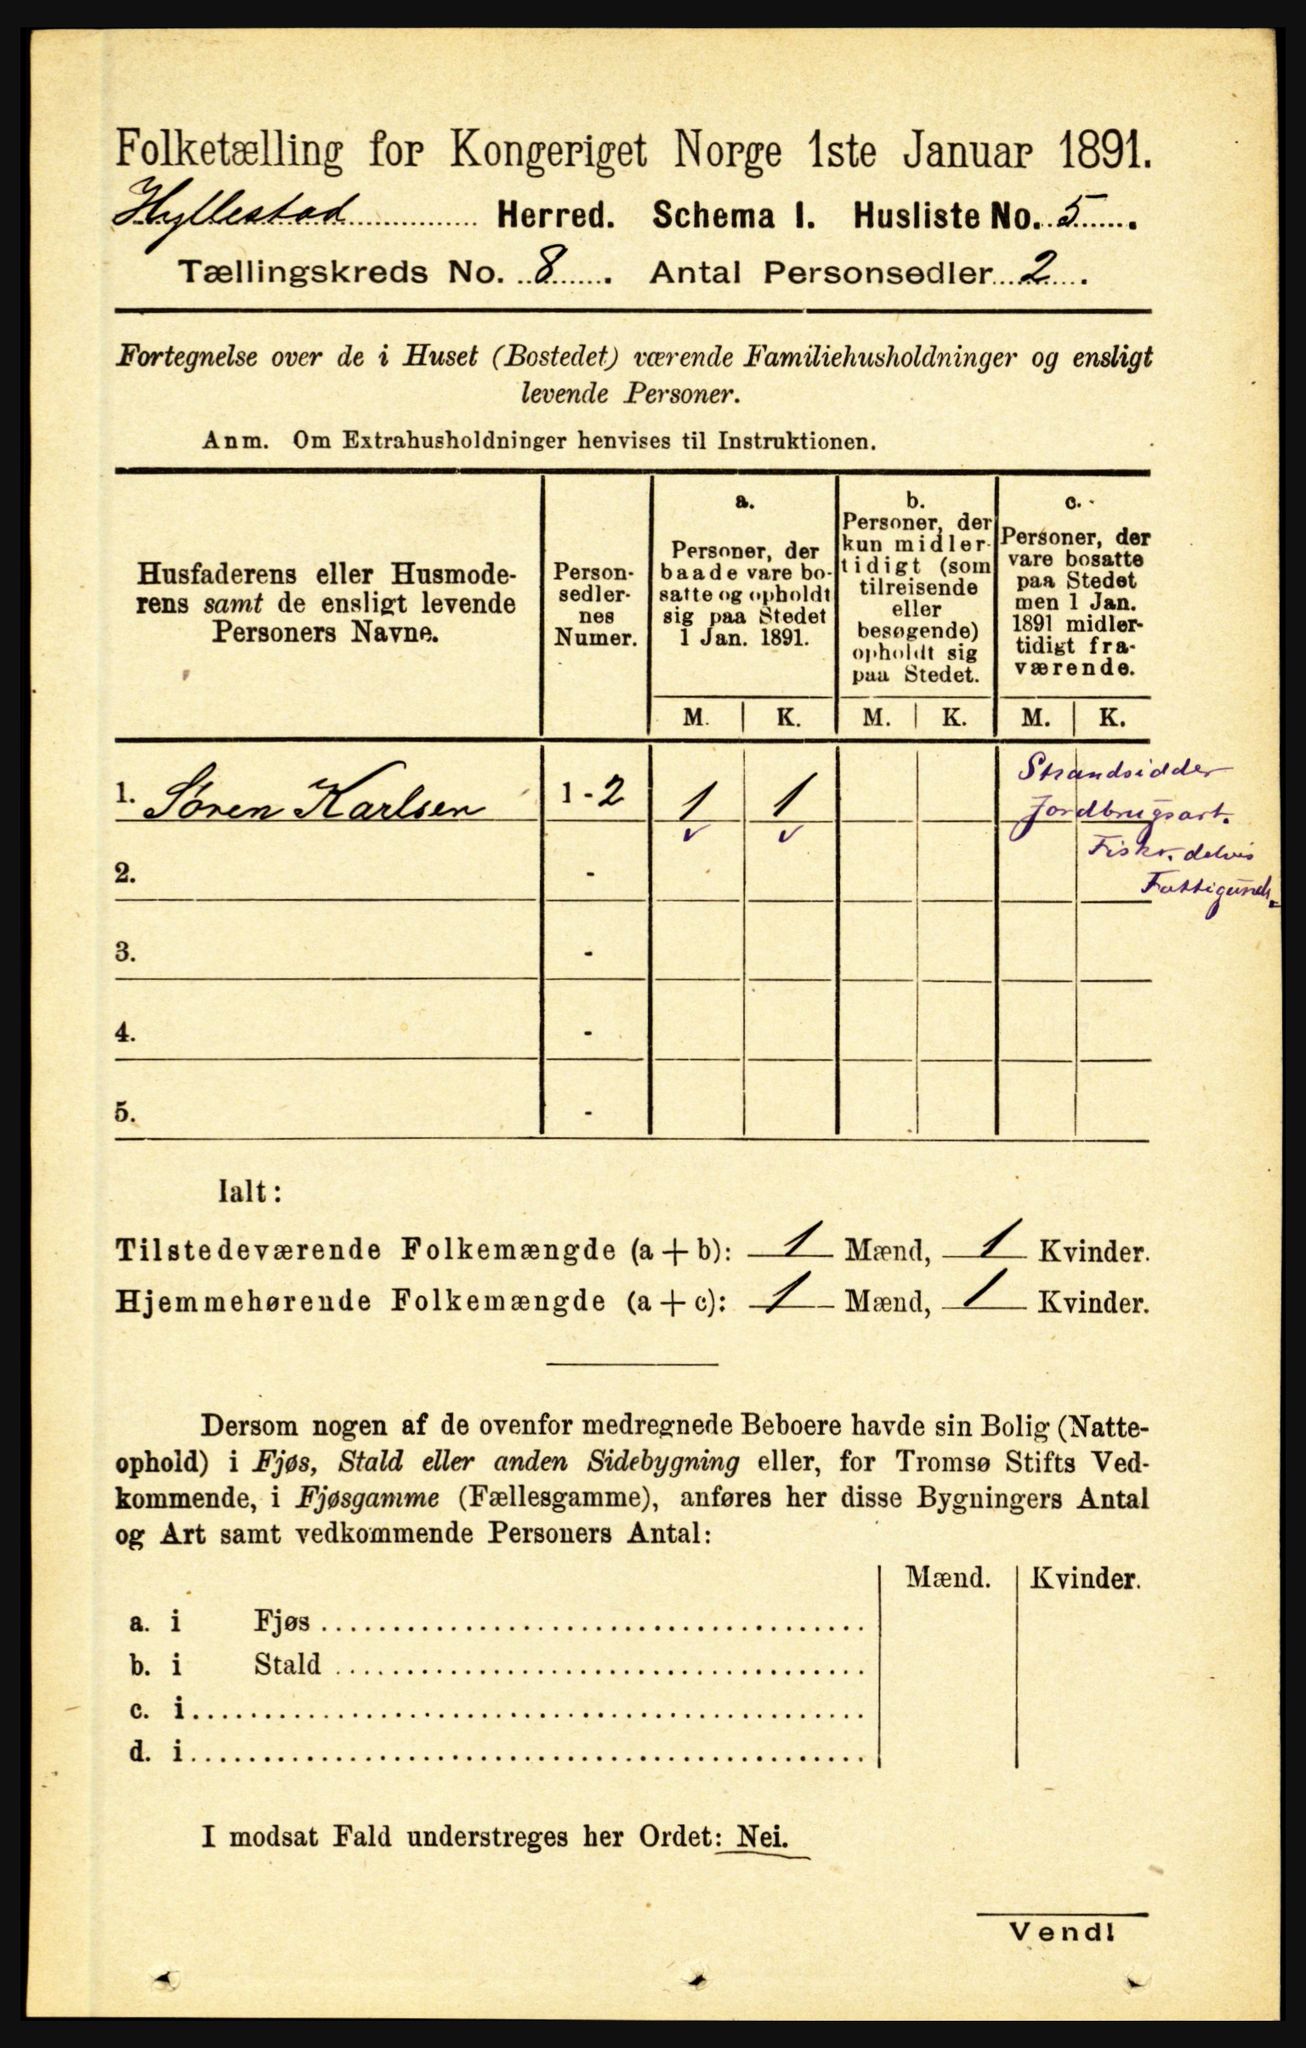 Folketælling for Kongeriget Norge 1ste Januar 1891.
Hyllestad Herred. Schema I. Husliste No. 5.
Tællingskreds No. 8. Antal Personsedler 2.
Fortegnelse over de i Huset (Bostedet) værende Familiehusholdninger og ensligt
levende Personer.
Anm. Om Extrahusholdninger henvises til Instruktionen.
Husfaderens eller Husmode-
rens samt de ensligt levende
Personers Navne.
Person-
sedler-
nes
Numer.
a.
Personer, der
baade vare bo-
satte og opholdt
sig paa Stedet
1 Jan. 1891.
b.
Personer, der
kun midler-
tidigt (som
tilreisende
eller
besøgende)
opholdt sig
paa Stedet.
c.
Personer, der
vare bosatte
paa Stedet
men 1 Jan.
1891 midler-
tidigt fra-
værende.
M. K. M. K. M. K.
1. Søren Karlsen 1-2 1 1
Strandsidder
Jordbrugsarb.
Fiskr. delvis
2. -
3. -
4. -
5. -
Ialt:
Tilstedeværende Folkemængde (a + b): 1 Mænd, 1 Kvinder.
Hjemmehørende Folkemængde (a + c): 1 Mænd, 1 Kvinder.
Dersom nogen af de ovenfor medregnede Beboere havde sin Bolig (Natte-
ophold) i Fjøs, Stald eller anden Sidebygning eller, for Tromsø Stifts Ved-
kommende, i Fjøsgamme (Fællesgamme), anføres her disse Bygningers Antal
og Art samt vedkommende Personers Antal:
Mænd. Kvinder.
a. i Fjøs
b. i Stald
c. i
d. i
I modsat Fald understreges her Ordet: Nei.
Vendl